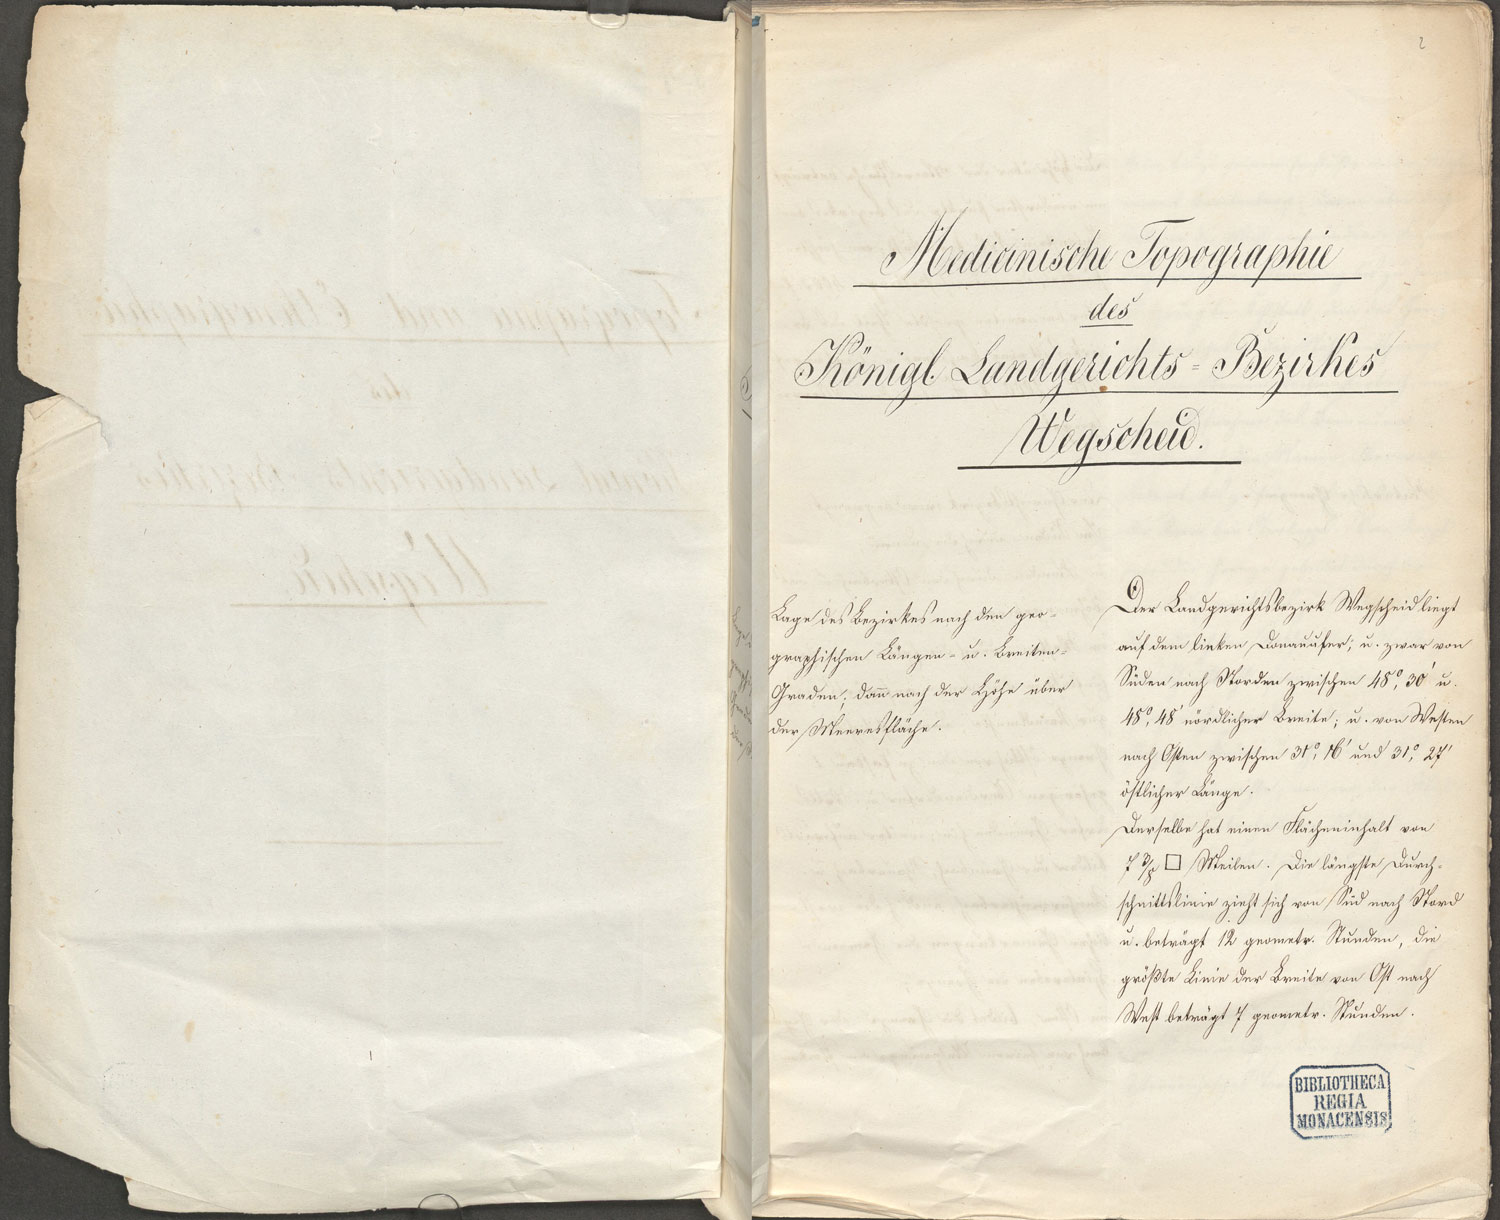 2
Medicinische Topographie
des
Königl. Landgerichts=Bezirkes
Wegscheid.
Lage des Bezirkes nach den geo-
graphischen Längen= u. Breiten=
Graden; dann nach der Höhe über
der Meeresfläche.
Der Landgerichtsbezirk Wegscheid liegt
auf dem linken Donauufer; u. zwar von
Süden nach Norden zwischen 48°, 30' u.
48°, 48' nördlicher Breite; u. von Westen
nach Osten zwischen 31°, 16' und 31°, 27'
östlicher Länge.
Derselbe hat einen Flächeninhalt von
7 □ Meilen. Die längste Durch-
schnittslinie zieht sich von Süd nach Nord
u. beträgt 12 geometr. Stunden, die
größte Linie der Breite von Ost nach
West beträgt 7 geometr. Stunden.
BIBLIOTHECA
REGIA
MONACENSIS